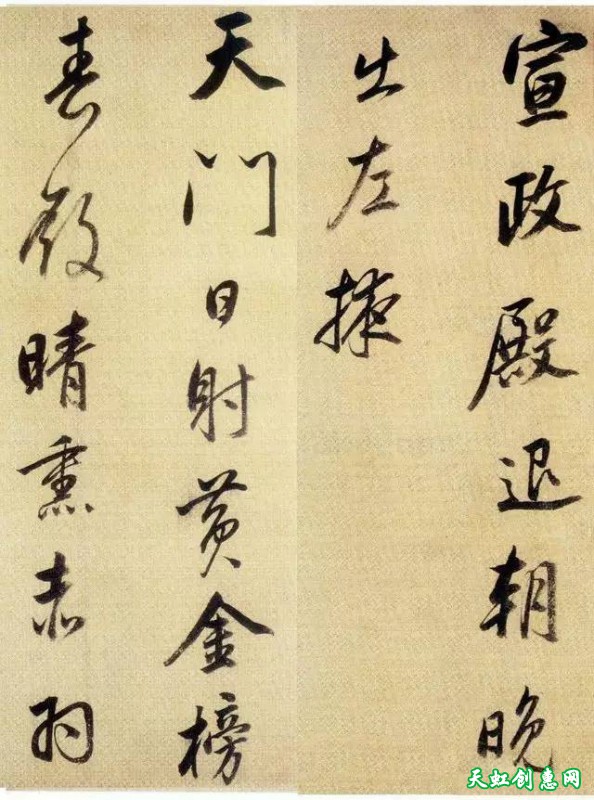 宣政殿退朝晚
出左掖
天门日射黄金榜
春殿晴熏赤羽
天虹创惠网